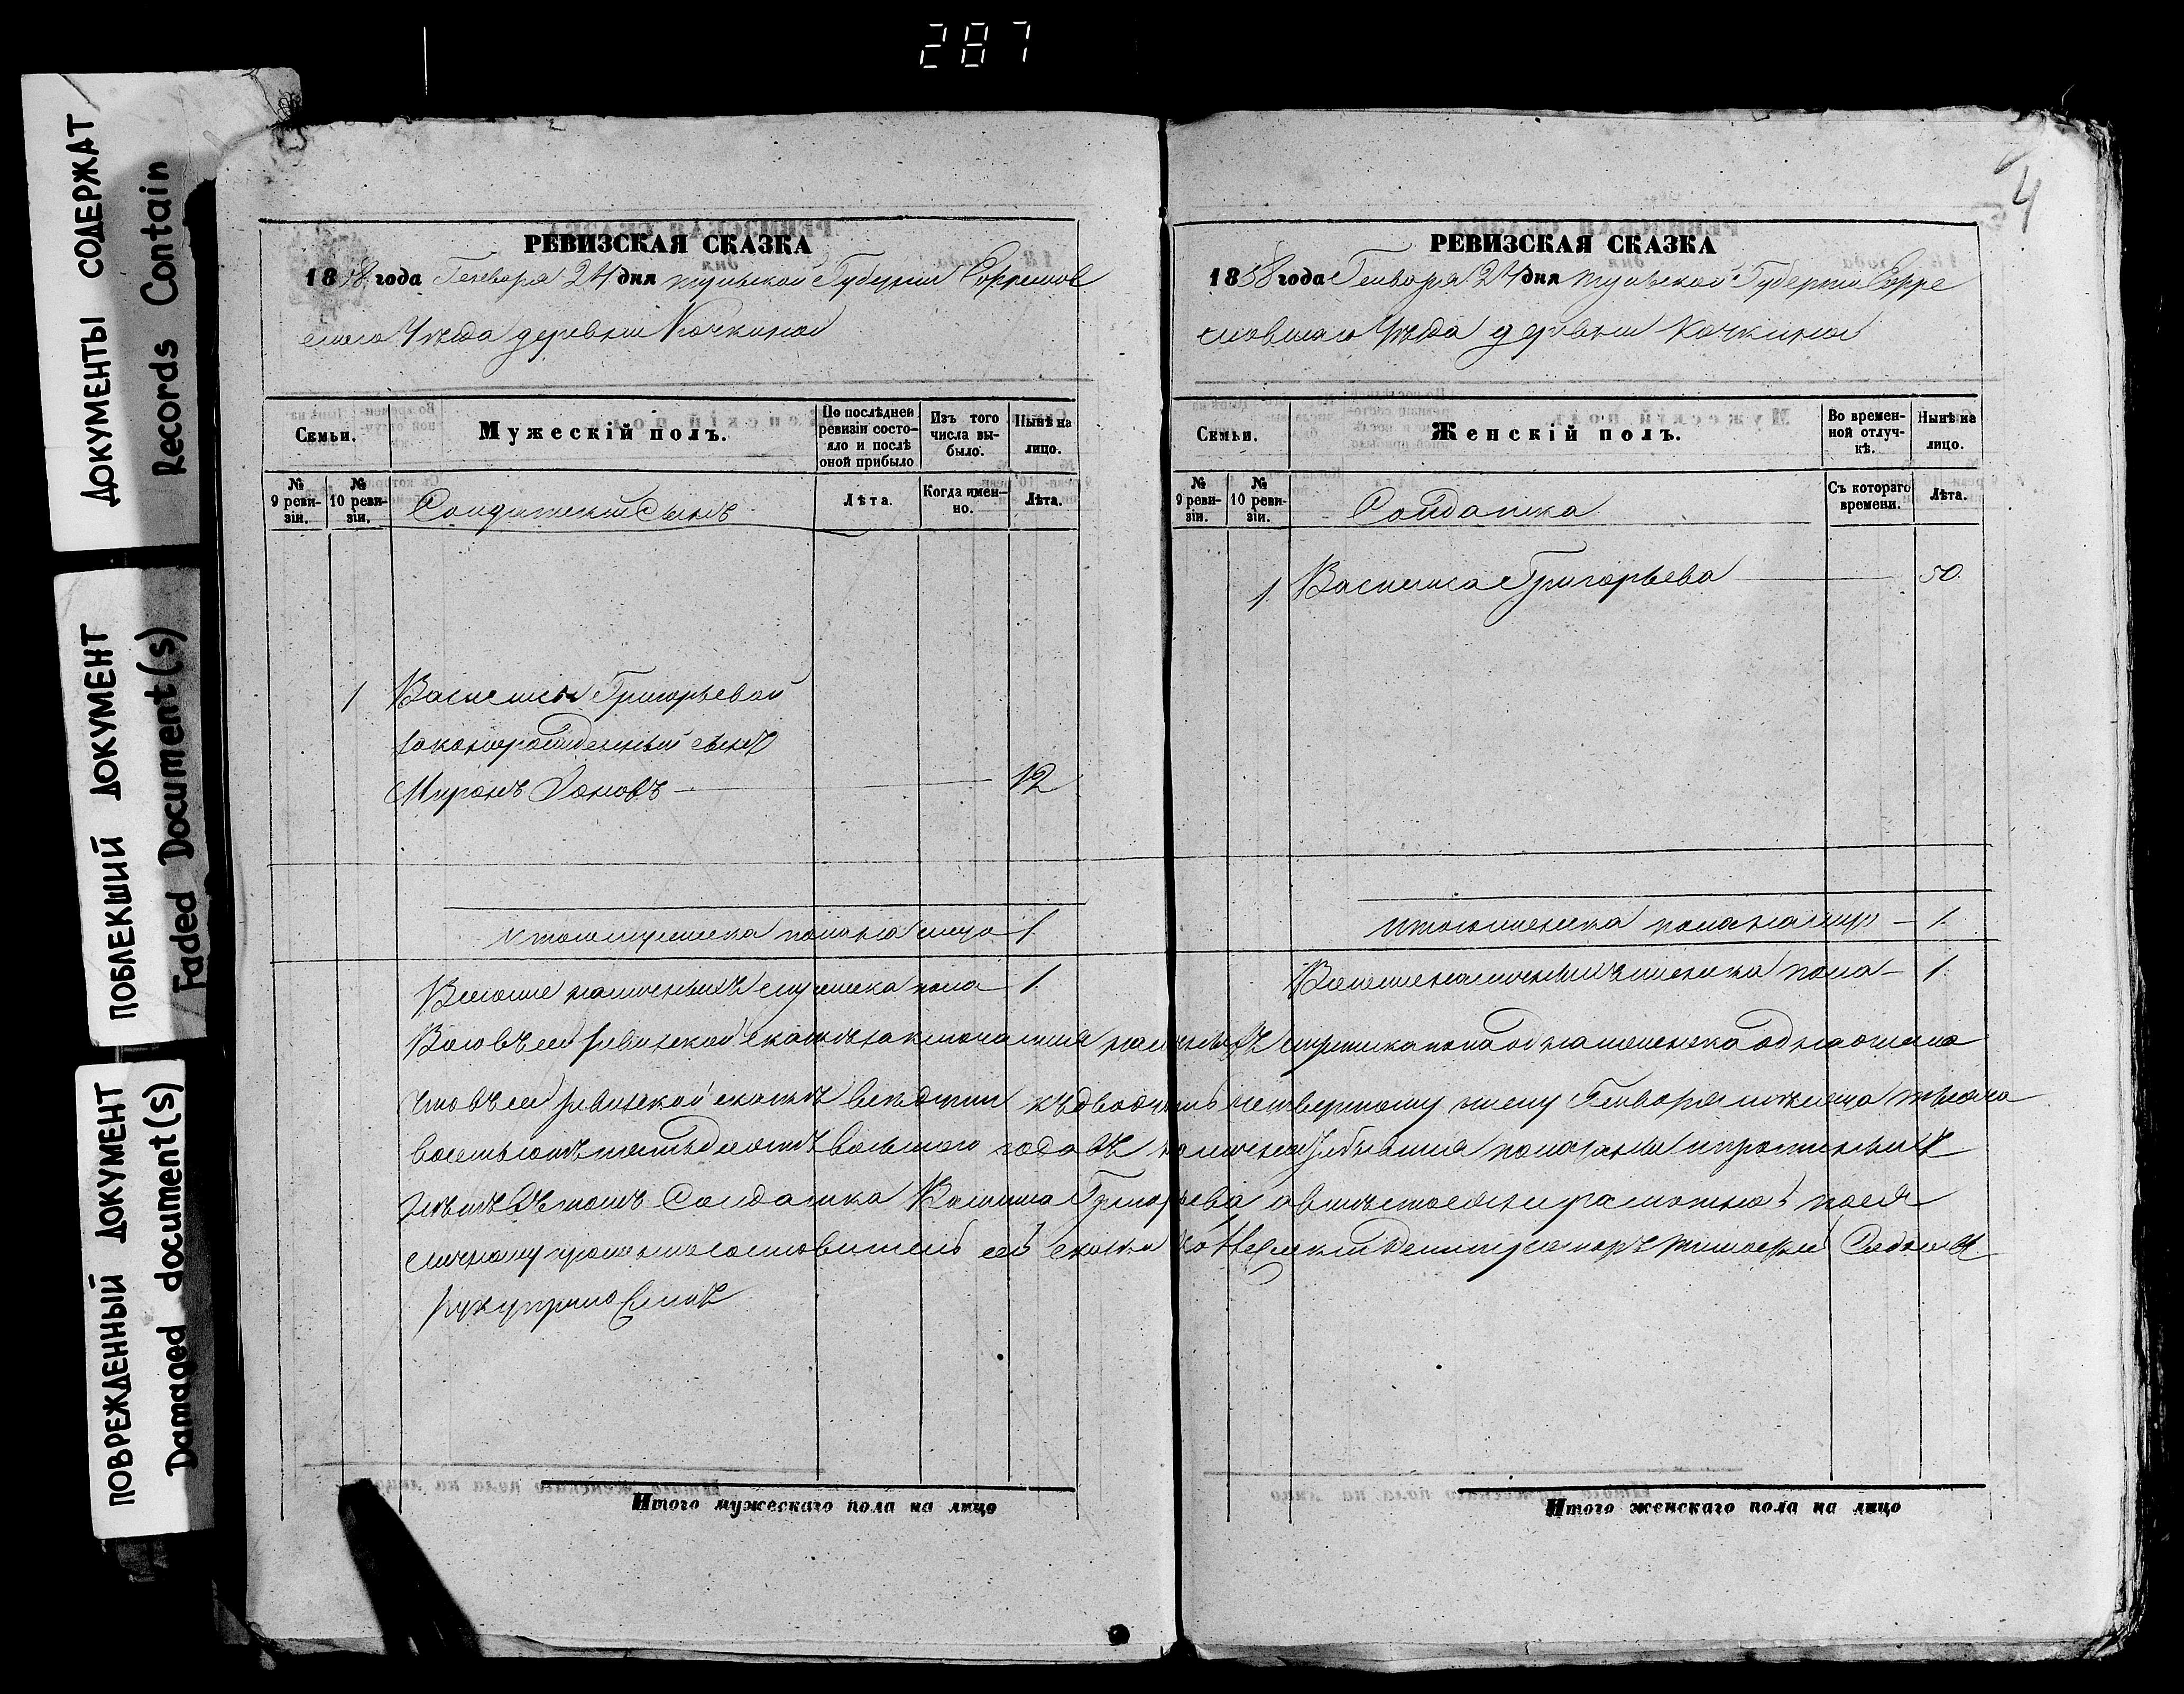 287
ДОКУМЕНТЫ СОДЕРЖАТ
Records Contain
ПОБЛЕКШИЙ ДОКУМЕНТ
Faded Document(s)
ПОВРЕЖДЕННЫЙ ДОКУМЕНТ
Damaged document(s)
РЕВИЗСКАЯ СКАЗКА
1858 года Генваря 24 дня тульской Губернии Ефремов
скаго Уезда деревни Кочкиной
Семьи.
Мужескій полъ.
По послѣдней ревизіи состо-
яло и послѣ
оной прибыло
Изъ того
числа вы-
было.
Нынѣ на
лицо.
№
9 реви-
зіи.
№
10 реви-
зіи.
Солдатский Сынъ
Лѣта.
Когда имен-
но.
Лѣта.
1 Василисы Григорьевой
законнорожденный сынъ
Миронъ 12
Итого мужеска пола на лицо 1
Всего наличныхъ мужеска пола 1
4
РЕВИЗСКАЯ СКАЗКА
1858 года Генваря 24 дня тульской Губернии Ефре
мовскаго Уезда деревни Кочкиной
Семьи.
Женскій полъ.
Во времен-
ной отлуч-
кѣ.
Нынѣ на
лицо.
№
9 реви-
зіи.
№
10 реви-
зіи.
Солдатка
Съ котораго
времени.
Лѣта.
1 Василиса Григорьева 50
Итого женска пола на лицо 1
Всего наличныхъ женска пола 1
ревизской сказке наличныхъ мужеска пола одна женска одна
что въ сей ревизской сказкѣ къ двадцать четвертому числу Генваря месяца тысяча
восемьсотъ пятьдесятъ восьмого года
въ томъ Солдатка Василиса Григорьева а вместо ея неграмотной по ея
личному прошению сей сказки
руку приложилъ
Итого мужескаго пола на лицо
Итого женскаго пола на лицо